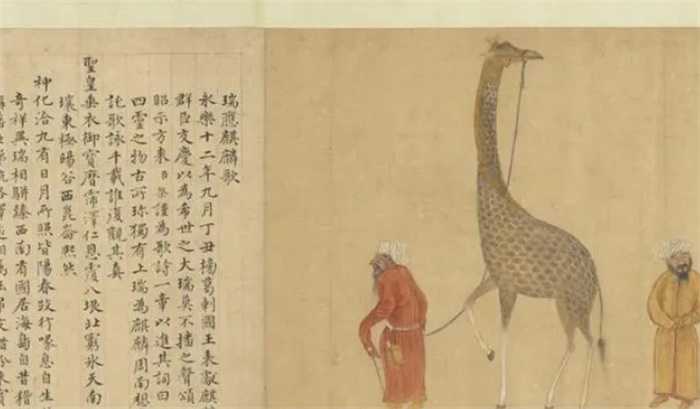 瑞應麒麟歌
永樂十二年九月丁丑榜葛剌國王来獻麒
群臣交慶以為希世之大瑞莫不播之聲頌
昭示方来謹為歌詩一章以進其詞曰
四靈之物古所珍獨有上瑞為麒麟周南想
詫歌詠千載誰復觀其真
聖皇垂衣御寶曆霈澤仁恩覃八埏北窮氷天南
壤東極暘谷西崑崙熙然
神化洽九有日月所照皆陽春跂行喙息自生
奇祥異瑞相聯臻西南有國居海島自昔稽